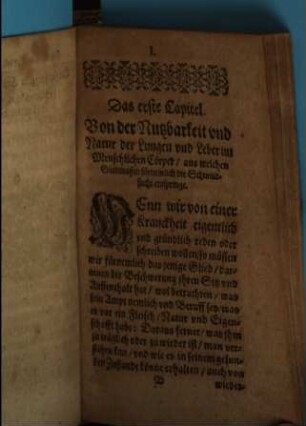 1.
Das erste Capitel.
Von der Nutzbarkeit vnd
Natur der Lungen vnd Leber im
Menschlichen Cörper / aus welchen
fürnemlich die Schwind-
sucht entspringe.
WEnn wir von einer
Kranckheit eigentlich
vnd gründlich reden oder
schreiben wollen / so müssen
wir fürnemlich das jenige Glied / dar-
innen die Beschwerung jhren Sitz vnd
Auffenthalt hat / wol betrachten / was
sein Ampt nemlich vnd Beruff sey / was
es vor ein Fleisch / Natur vnd Eigen-
schafft habe: Daraus ferner / was jhm
zu träglich oder zu wieder ist / man ver-
stehen kan / vnd wie es in seinem gesun-
den Zustande könne erhalten / auch von
D wieder-